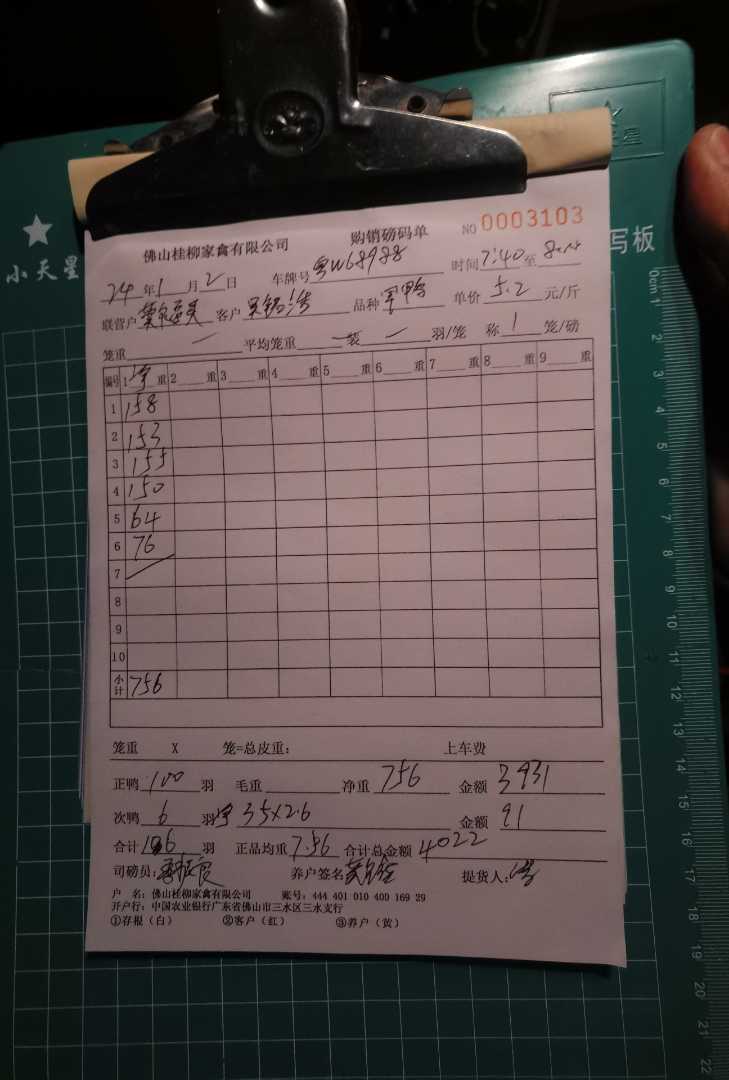 小天星
写板
佛山桂柳家禽有限公司 购销磅码单 NO 0003103
24年1月2日 车牌号 粤W68988 时间 7:40 至
联营户 客户 品种 单价 5.2 元/斤
笼重 一 平均笼重 一 装 一 羽/笼 称 1 笼/磅
编号 1 净 重 2 重 3 重 4 重 5 重 6 重 7 重 8 重 9 重
1 158
2 153
3 155
4 150
5 64
6 76
7
8
9
10
小计 756
笼重 X 笼=总皮重: 上车费
正鸭 100 羽 毛重 净重 756 金额 3931
次鸭 6 羽 净 35×2.6 金额 91
合计 106 羽 正品均重 7.56 合计总金额 4022
司磅员: 养户签名 提货人:
户 名: 佛山桂柳家禽有限公司 账号: 444 401 010 400 169 29
开户行: 中国农业银行广东省佛山市三水区三水支行
①存根(白) ②客户(红) ③养户(黄)
0cm 1 2 3 4 5 6 7 8 9 10 11 12 13 14 15 16 17 18 19 20 21 22